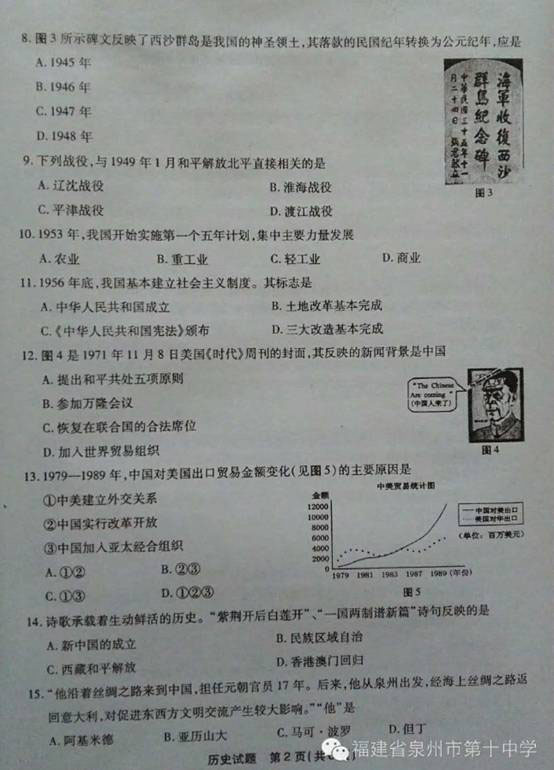 8. 图3所示碑文反映了西沙群岛是我国的神圣领土,其落款的民国纪年转换为公元纪年,应是
A. 1945年
B. 1946年
C. 1947年
D. 1948年
海军收復西沙
群岛纪念碑
中华民国三十五年十一
月二十四日 张君然立
图3
9. 下列战役,与1949年1月和平解放北平直接相关的是
A. 辽沈战役 B. 淮海战役
C. 平津战役 D. 渡江战役
10. 1953年,我国开始实施第一个五年计划,集中主要力量发展
A. 农业 B. 重工业 C. 轻工业 D. 商业
11. 1956年底,我国基本建立社会主义制度。其标志是
A. 中华人民共和国成立 B. 土地改革基本完成
C.《中华人民共和国宪法》颁布 D. 三大改造基本完成
12. 图4是1971年11月8日美国《时代》周刊的封面,其反映的新闻背景是中国
A. 提出和平共处五项原则
B. 参加万隆会议
C. 恢复在联合国的合法席位
D. 加入世界贸易组织
"The Chinese
Are coming"
(中国人来了)
图4
13. 1979—1989年,中国对美国出口贸易金额变化(见图5)的主要原因是
①中美建立外交关系
②中国实行改革开放
③中国加入亚太经合组织
A. ①② B. ②③
C. ①③ D. ①②③
中美贸易统计图
金额
12000
10000
8000
6000
4000
2000
0
1979 1981 1983 1987 1989 (年份)
中国对美出口
美国对华出口
(单位:百万美元)
图5
14. 诗歌承载着生动鲜活的历史。“紫荆开后白莲开”、“一国两制谱新篇”诗句反映的是
A. 新中国的成立 B. 民族区域自治
C. 西藏和平解放 D. 香港澳门回归
15. “他沿着丝绸之路来到中国,担任元朝官员17年。后来,他从泉州出发,经海上丝绸之路返
回意大利,对促进东西方文明交流产生较大影响。”“他”是
A. 阿基米德 B. 亚历山大 C. 马可·波罗 D. 但丁
历史试题 第2页(共
福建省泉州市第十中学